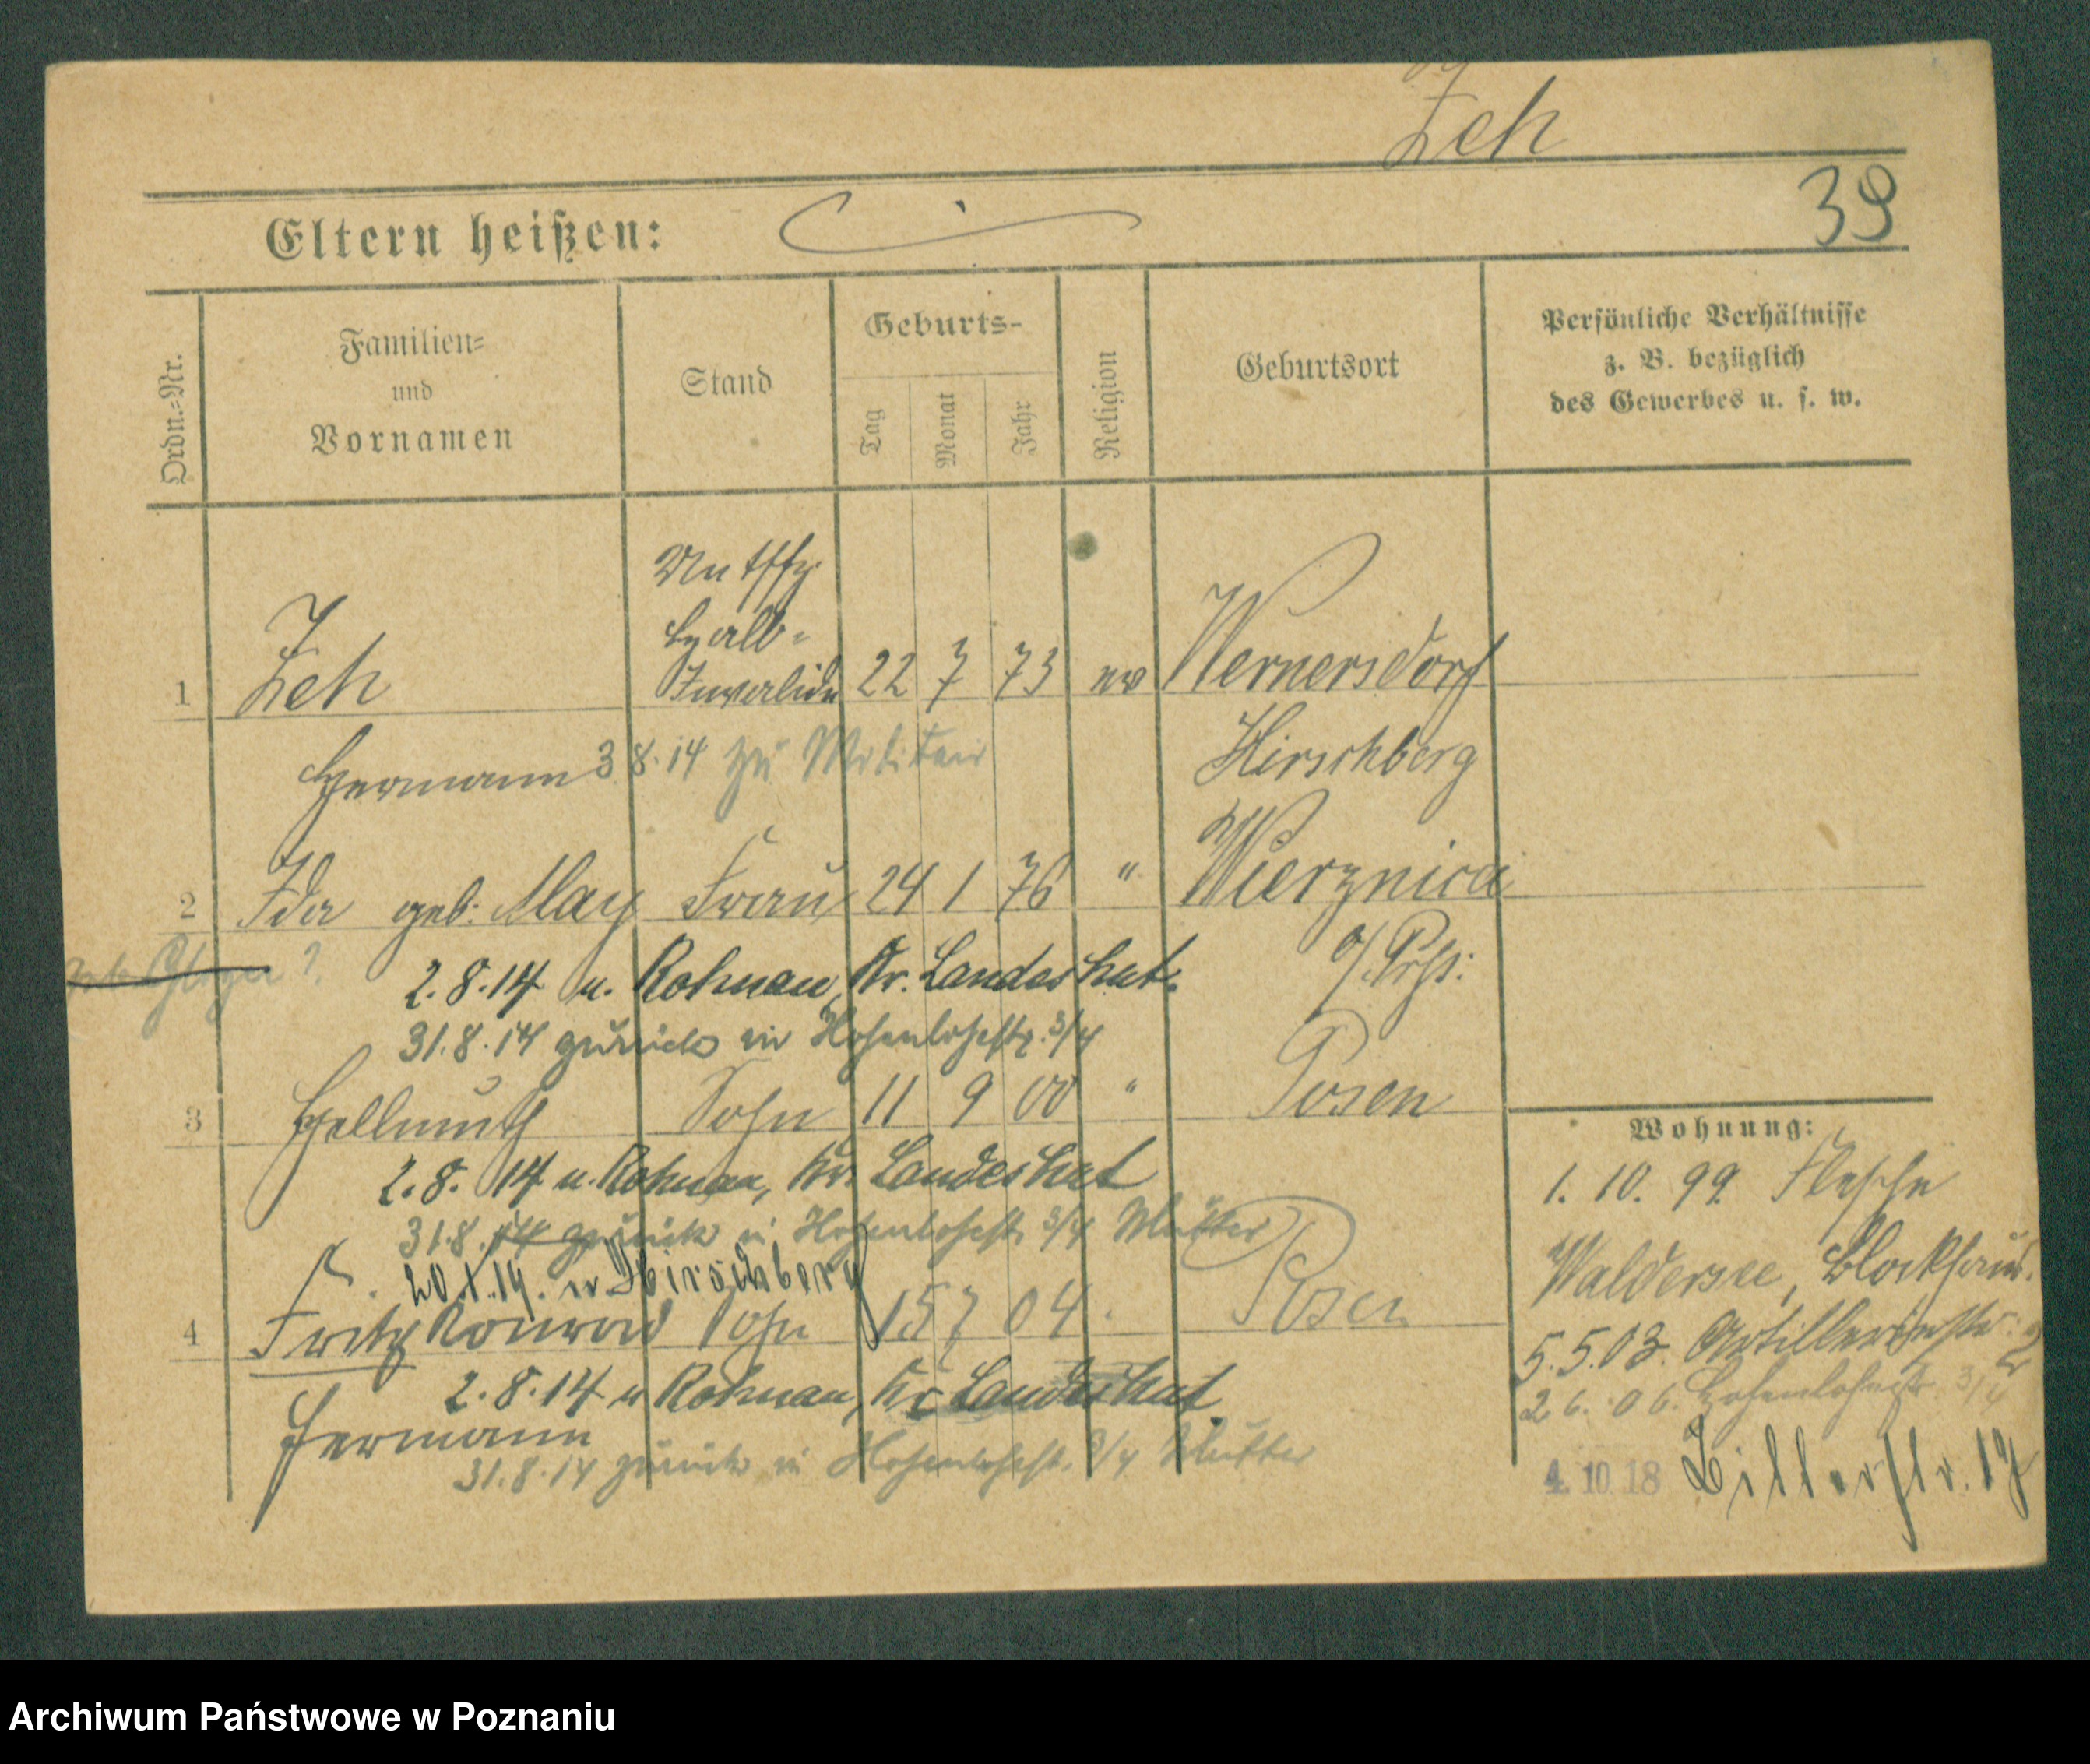 Zeh
39
Eltern heißen:
Ordn.=Nr.
Familien=
und
Vornamen
Stand
Geburts-
Tag
Monat
Jahr
Religion
Geburtsort
Persönliche Verhältnisse
z. B. bezüglich
des Gewerbes u. s. w.
Halb-
1 Zeh Invalide 22 7 73 ev Wernersdorf
Hermann 3 8.14 zu Militair Hirschberg
2 Ida geb. May Frau 24 1 76 " Wierznica
2.8.14 n. Rohnau, Kr. Landeshut.
31.8.14 zurück in Hohenlohestr. 3/4
3 Hellmuth Sohn 11 9 00 " Posen
2.8.14 n. Rohnau, Kr. Landeshut
31.8.14 zurück in Hohenlohestr. 3/4 Mutter
Hirschberg
4 Fritz Konrad Sohn 15 7 04 Posen
2.8.14 n Rohnau, Kr Landeshut
Hermann
31.8.14 zurück in Hohenlohestr. 3/4 Mutter
Wohnung:
1. 10. 99. Flesche
Waldersee, Blockhaus.
5.5.03. Artilleriestr.
2 6. 06. Hohenlohestr. 3/4
4. 10. 18
Archiwum Państwowe w Poznaniu